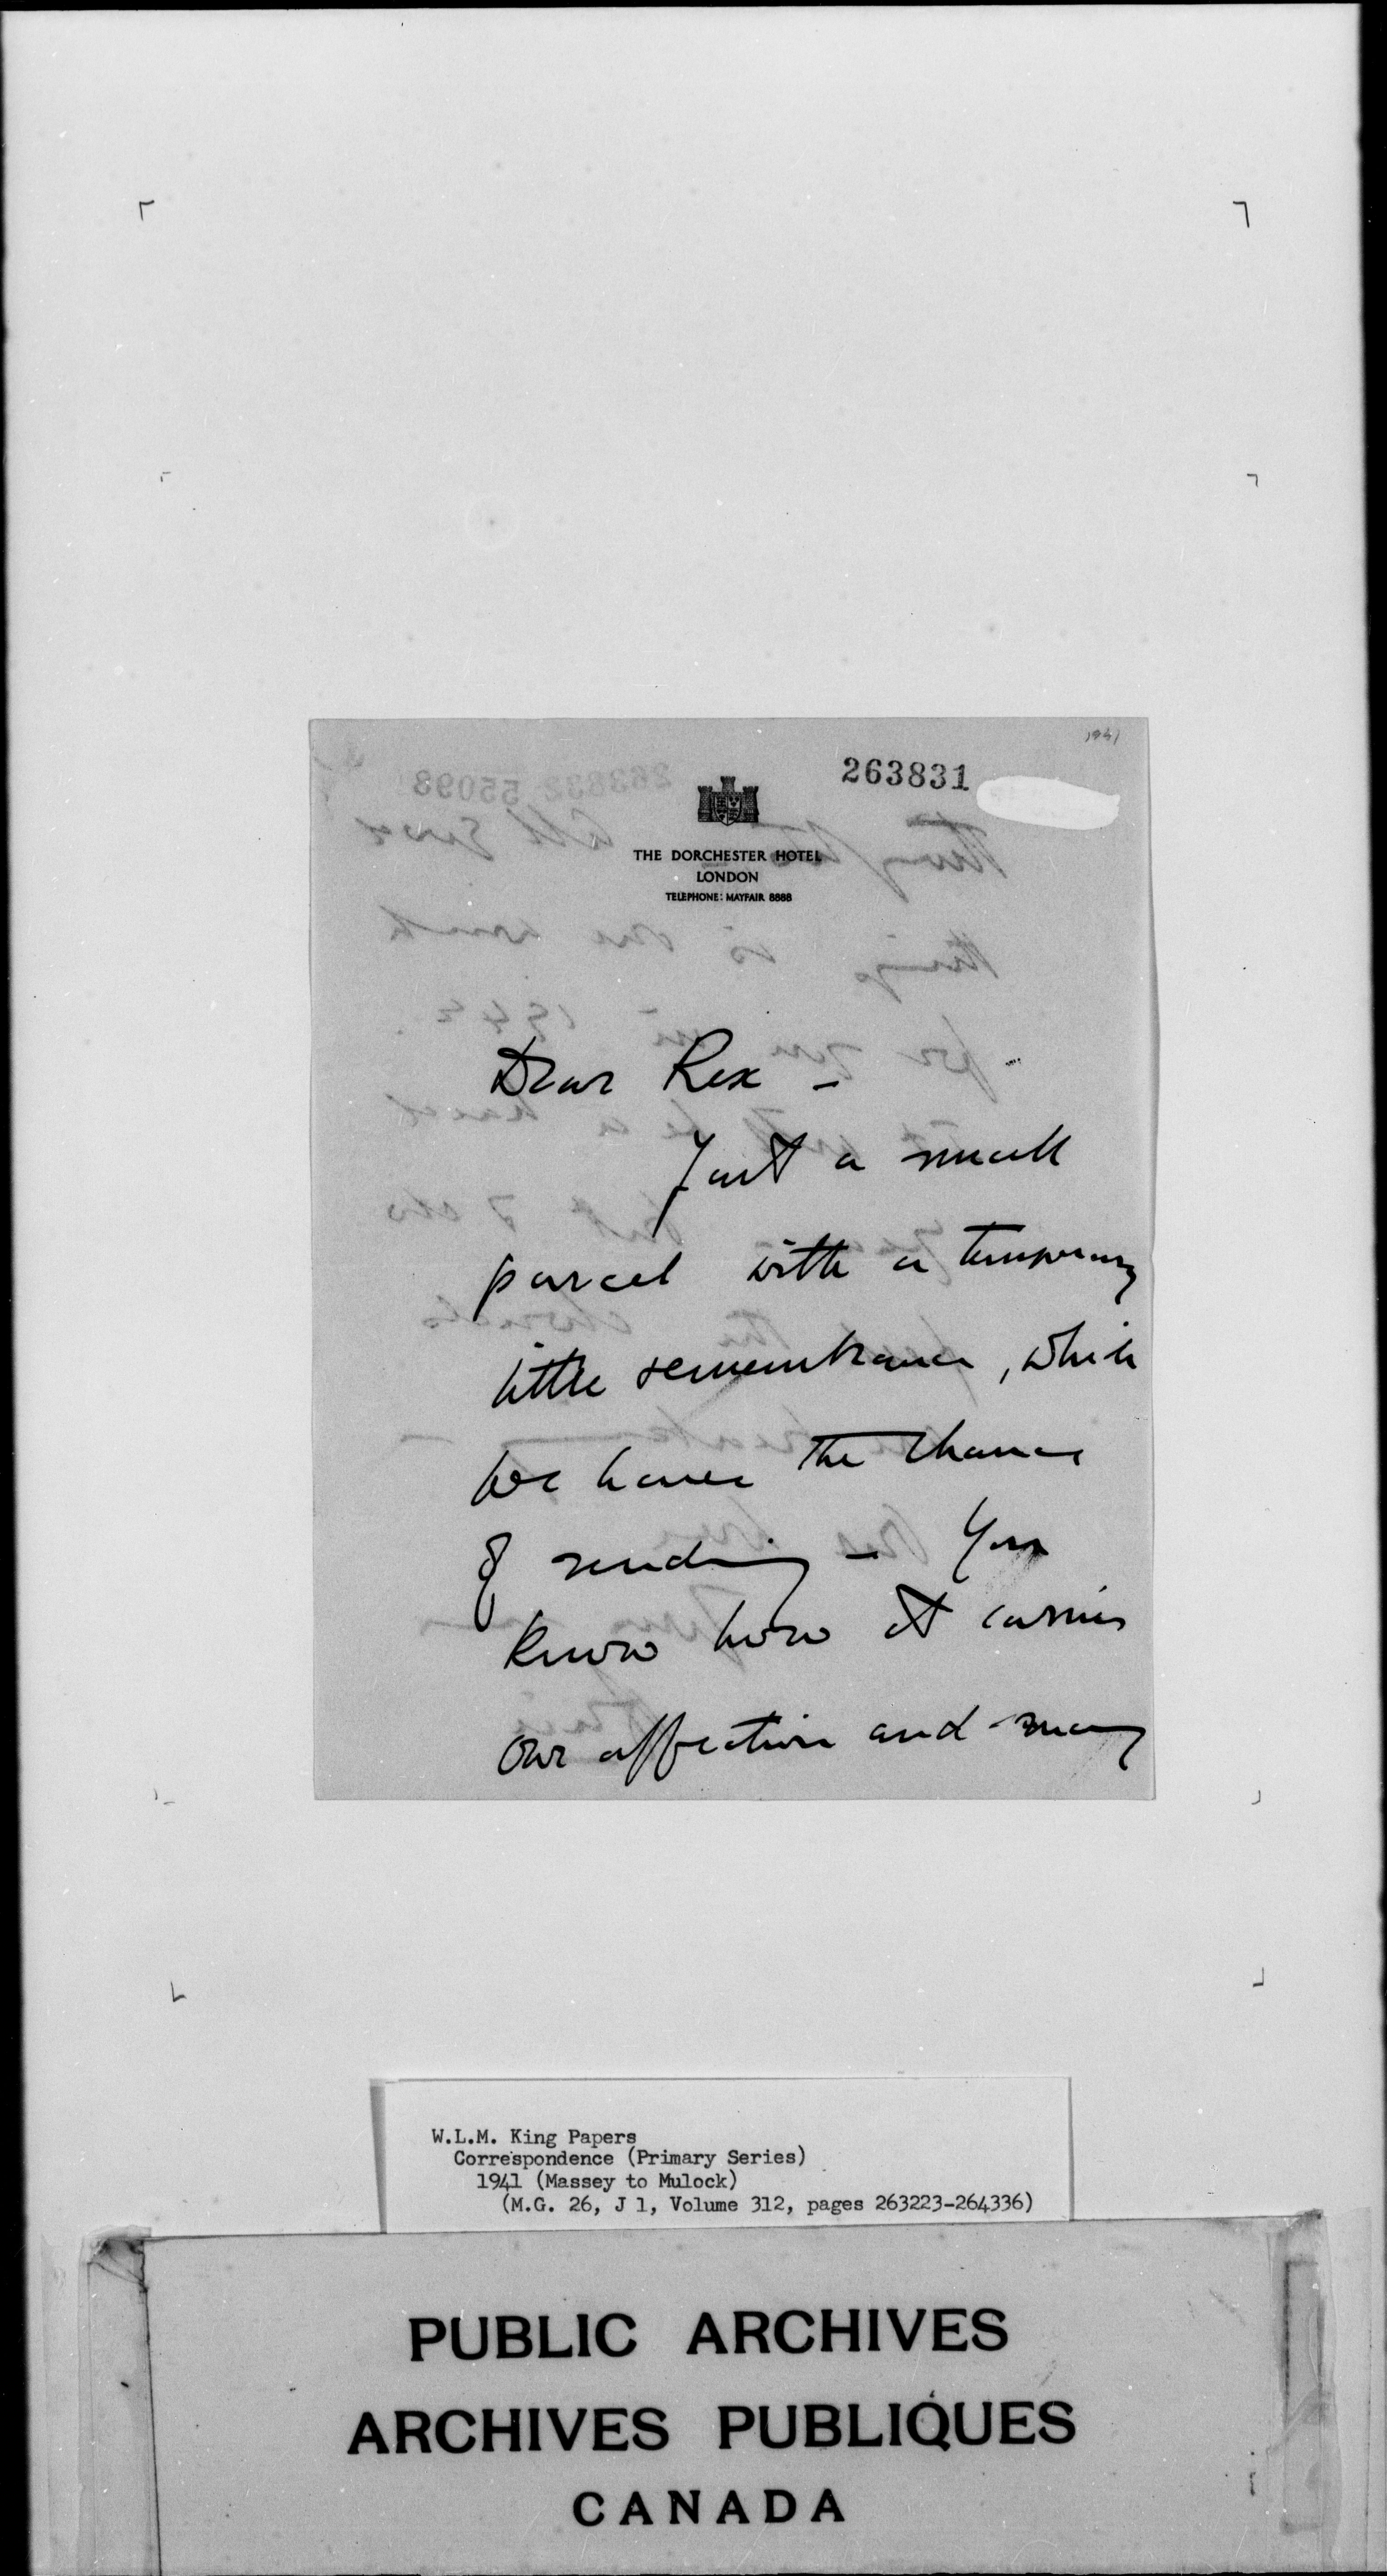 1941
263831
THE DORCHESTER HOTEL
LONDON
TELEPHONE: MAYFAIR 8888
Dear Rex –
Just a small
parcel with a temporary
little remembrance, which
we have the chance
of sending – You
know how it carries
our affection and many
W.L.M. King Papers
Correspondence (Primary Series)
1941 (Massey to Mulock)
(M.G. 26, J 1, Volume 312, pages 263223-264336)
PUBLIC ARCHIVES
ARCHIVES PUBLIQUES
CANADA